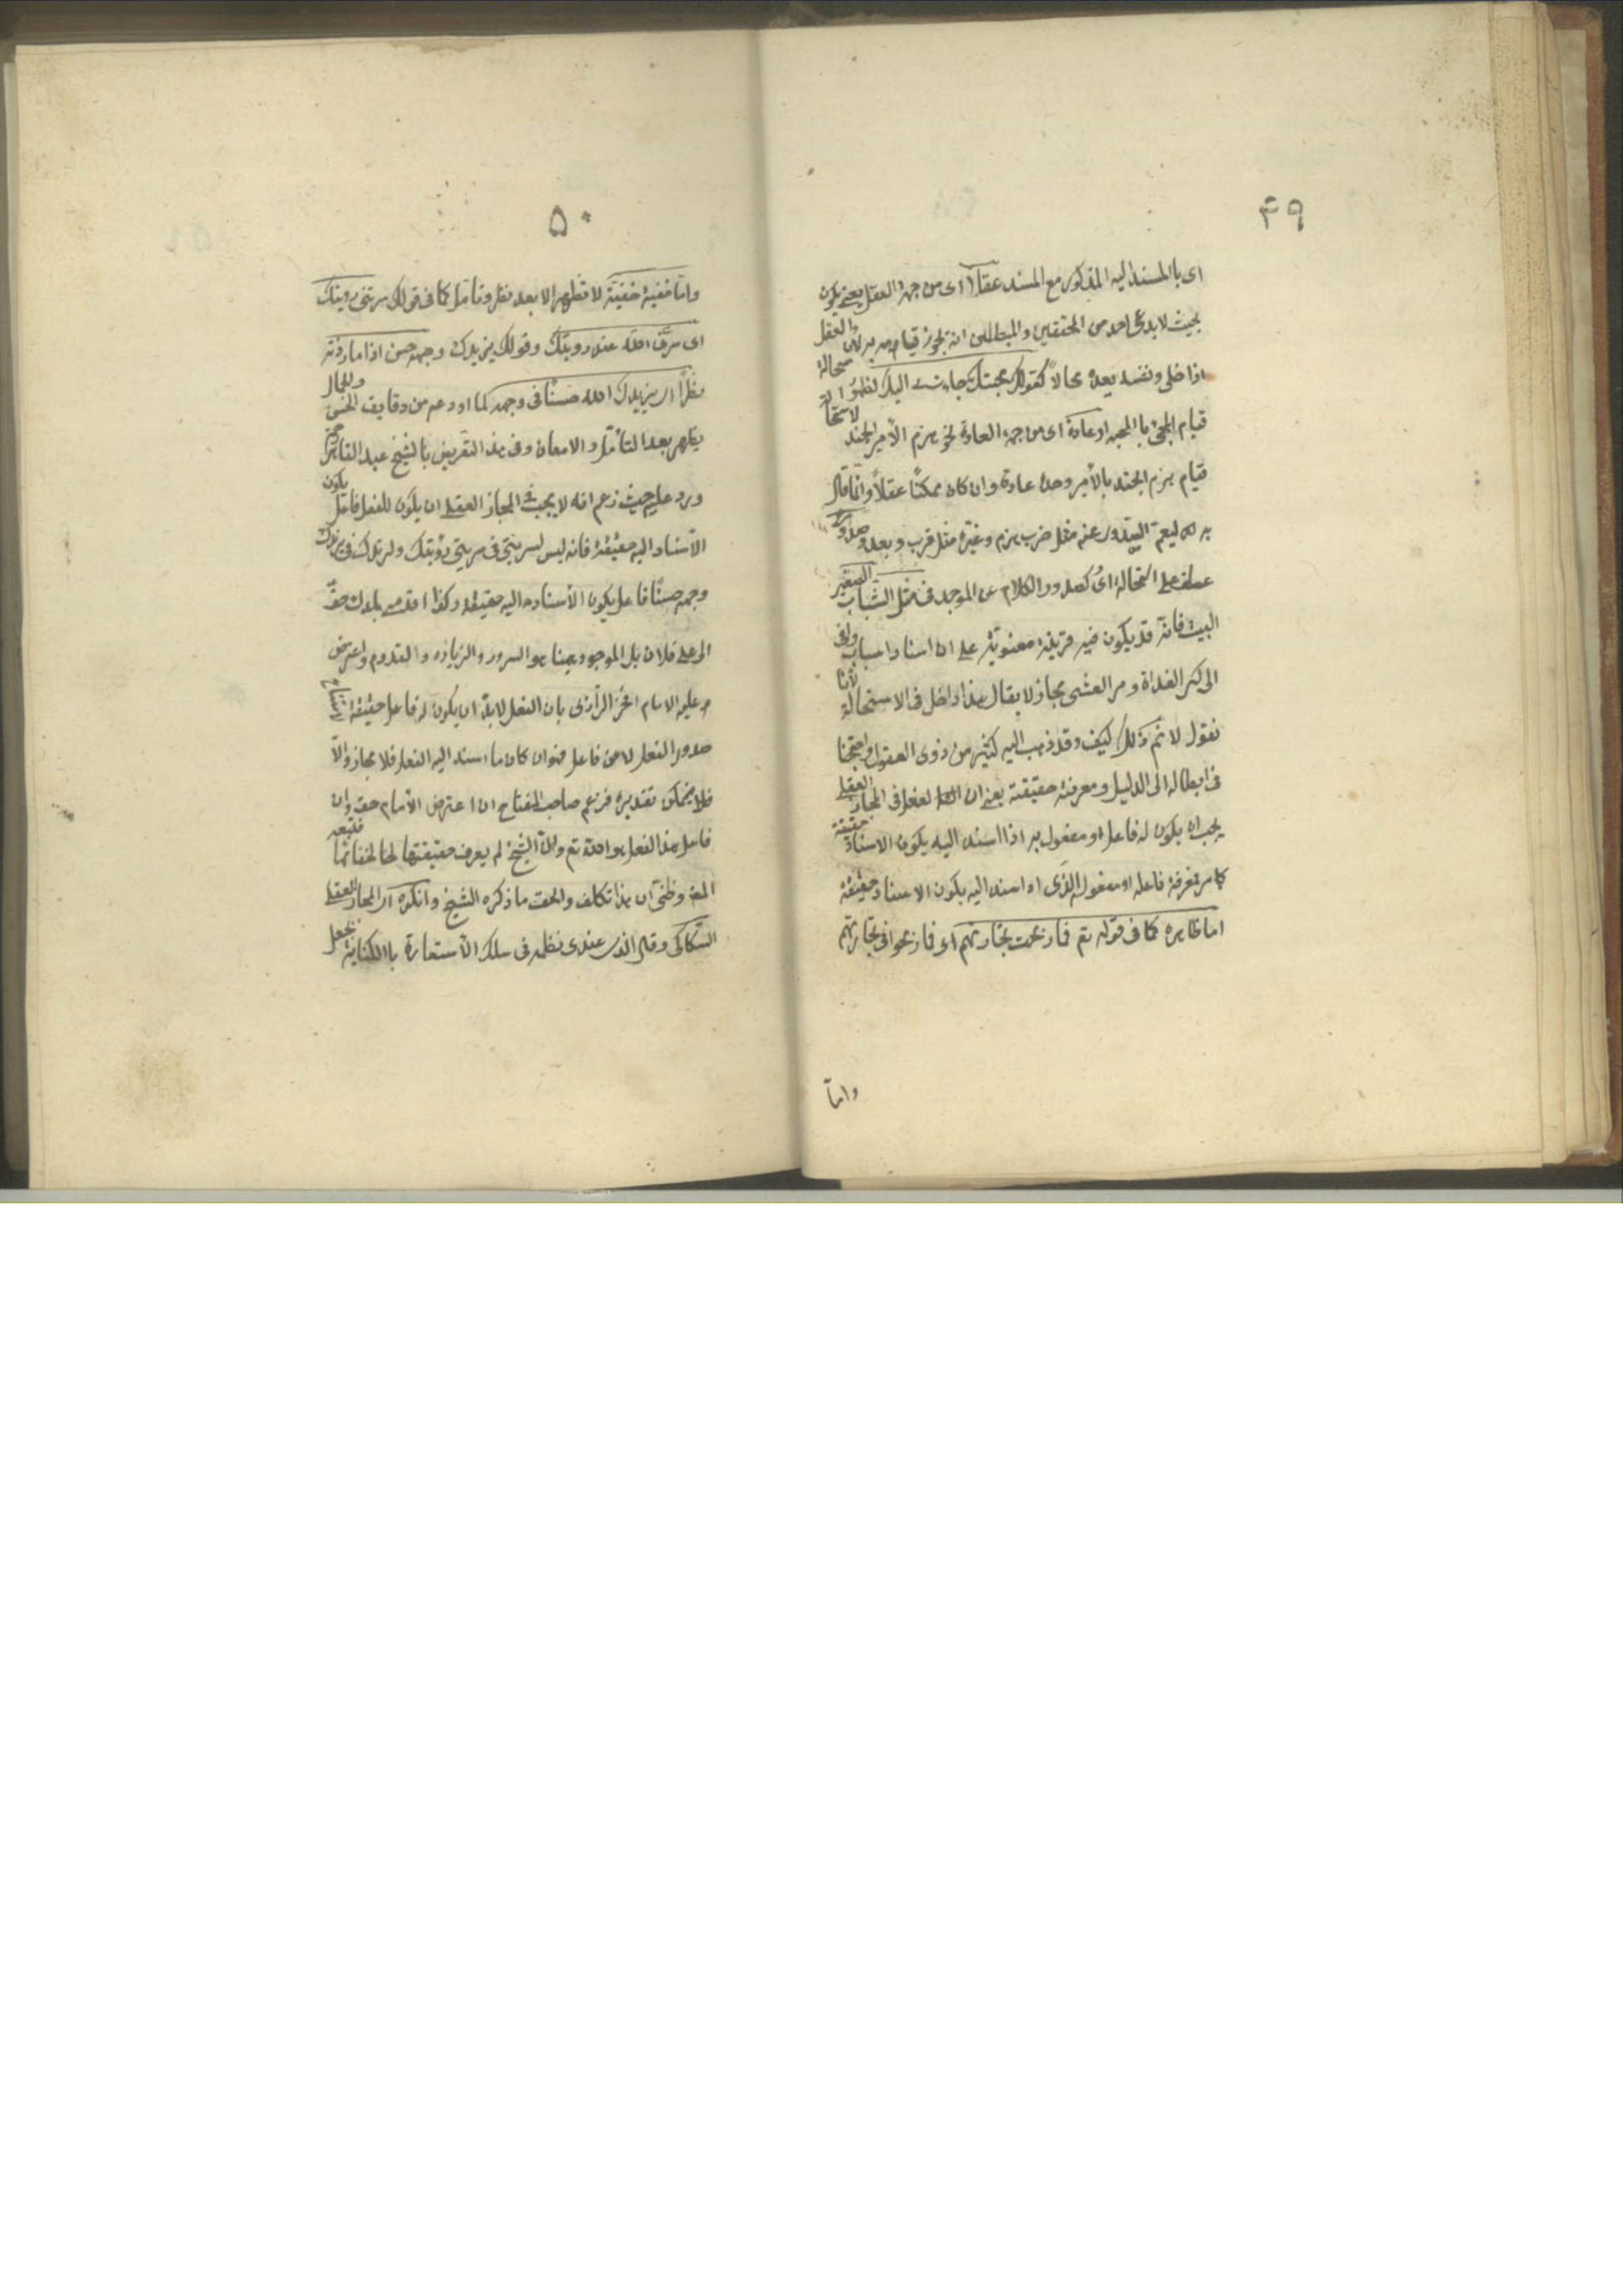 ٤٩
اى باالمسند اليه المذكور مع المسند عقلا اى من جهة العقل يعنى يكون
بحيث لا يدعى احد من المحققين والمبطلين انه يجوز قيامه به لان العقل
اذا خلى ونفسه يعده محالا كقولك محبتك جاءت بى اليك لظهور استحالة
قيام المجئ باالمحبه او عادة اى من جهة العادة نحو هزم الأمير الجند لاستحالة
قيام هزم الجند بالأمير وحده عادة وان كان ممكنًا عقلاً وانما قال
به ليعم الصدور عنه مثل ضرب هزم وغيره مثل قرب وبعد وصدوره
عطف على استحالة اى كصدور الكلام عن الموحد فى مثل اشاب الصغير
البيت فانه قد يكون فيه قرينة معنوية على ان اسناد اشاب وافنى
الى كر الغداة ومر العشى مجاز لا يقال هذا داخل فى الاستحالة لأنا
نقول لا نم ذلك كيف وقد ذهب اليه كثير من ذوى العقول واحتجنا
فى ابطاله الى الدليل ومعرفة حقيقته يعنى ان الفعل فى المجاز العقلى
يجب ان يكون له فاعل او مفعول به اذا اسند اليه يكون الاسناد حقيقة
كما مر فمعرفة فاعله او مفعوله الذى اذا اسند اليه يكون الاسناد حقيقة
اما ظاهره كما فى قوله تع فما ربحت تجارتهم اى فما ربحوا فى تجارتهم
واما
٥٠
واما خفية خفيّة لا تظهر الا بعد نظر وتأمل كما فى قولك سرتنى رويتك
اى سرّنى الله عند رويتك وقولك يزيدك وجهه حسن اذا ما زدته
نظراً اى يزيدك الله حسنًا فى وجهه لما اودعه من دقايق الحسن والجمال
يظهر بعد التأمل والامعان وفى هذا التعريض بالشيخ عبد القاهر
ورد عليه حيث زعم انه لا يجب فى المجاز العقلى ان يكون للفعل فاعل يكون
الأسناد اليه حقيقة فانه ليس لسرتنى فى سرتنى رؤيتك وليزيدك فى يزيدك
وجهه حسنًا فاعل يكون الأسناد اليه حقيقة وكذا اقدمنى بلدك حق
لى على فلان بل الموجود هنا هو السرور والزياده والقدوم واعترض
عليه الامام الفخر الرازى بان الفعل لا بدّ ان يكون له فاعل حقيقة
صدور الفعل لا من فاعل فهو ان كان ما اسند اليه الفعل فلا مجاز والاّ
فلا يمكن تقديره فزعم صاحب المفتاح ان اعتراض الأمام حق وان
فاعل هذا الفعل هو الله تع وان الشيخ لم يعرف حقيقتها لخفائها فتبعه
المص وظنى ان هذا تكلف والحق ما ذكره الشيخ وانكره اى المجاز العقلى
السّكاكى وقال الذى عندى نظمه فى سلك الأستعارة باالكناية بجعل